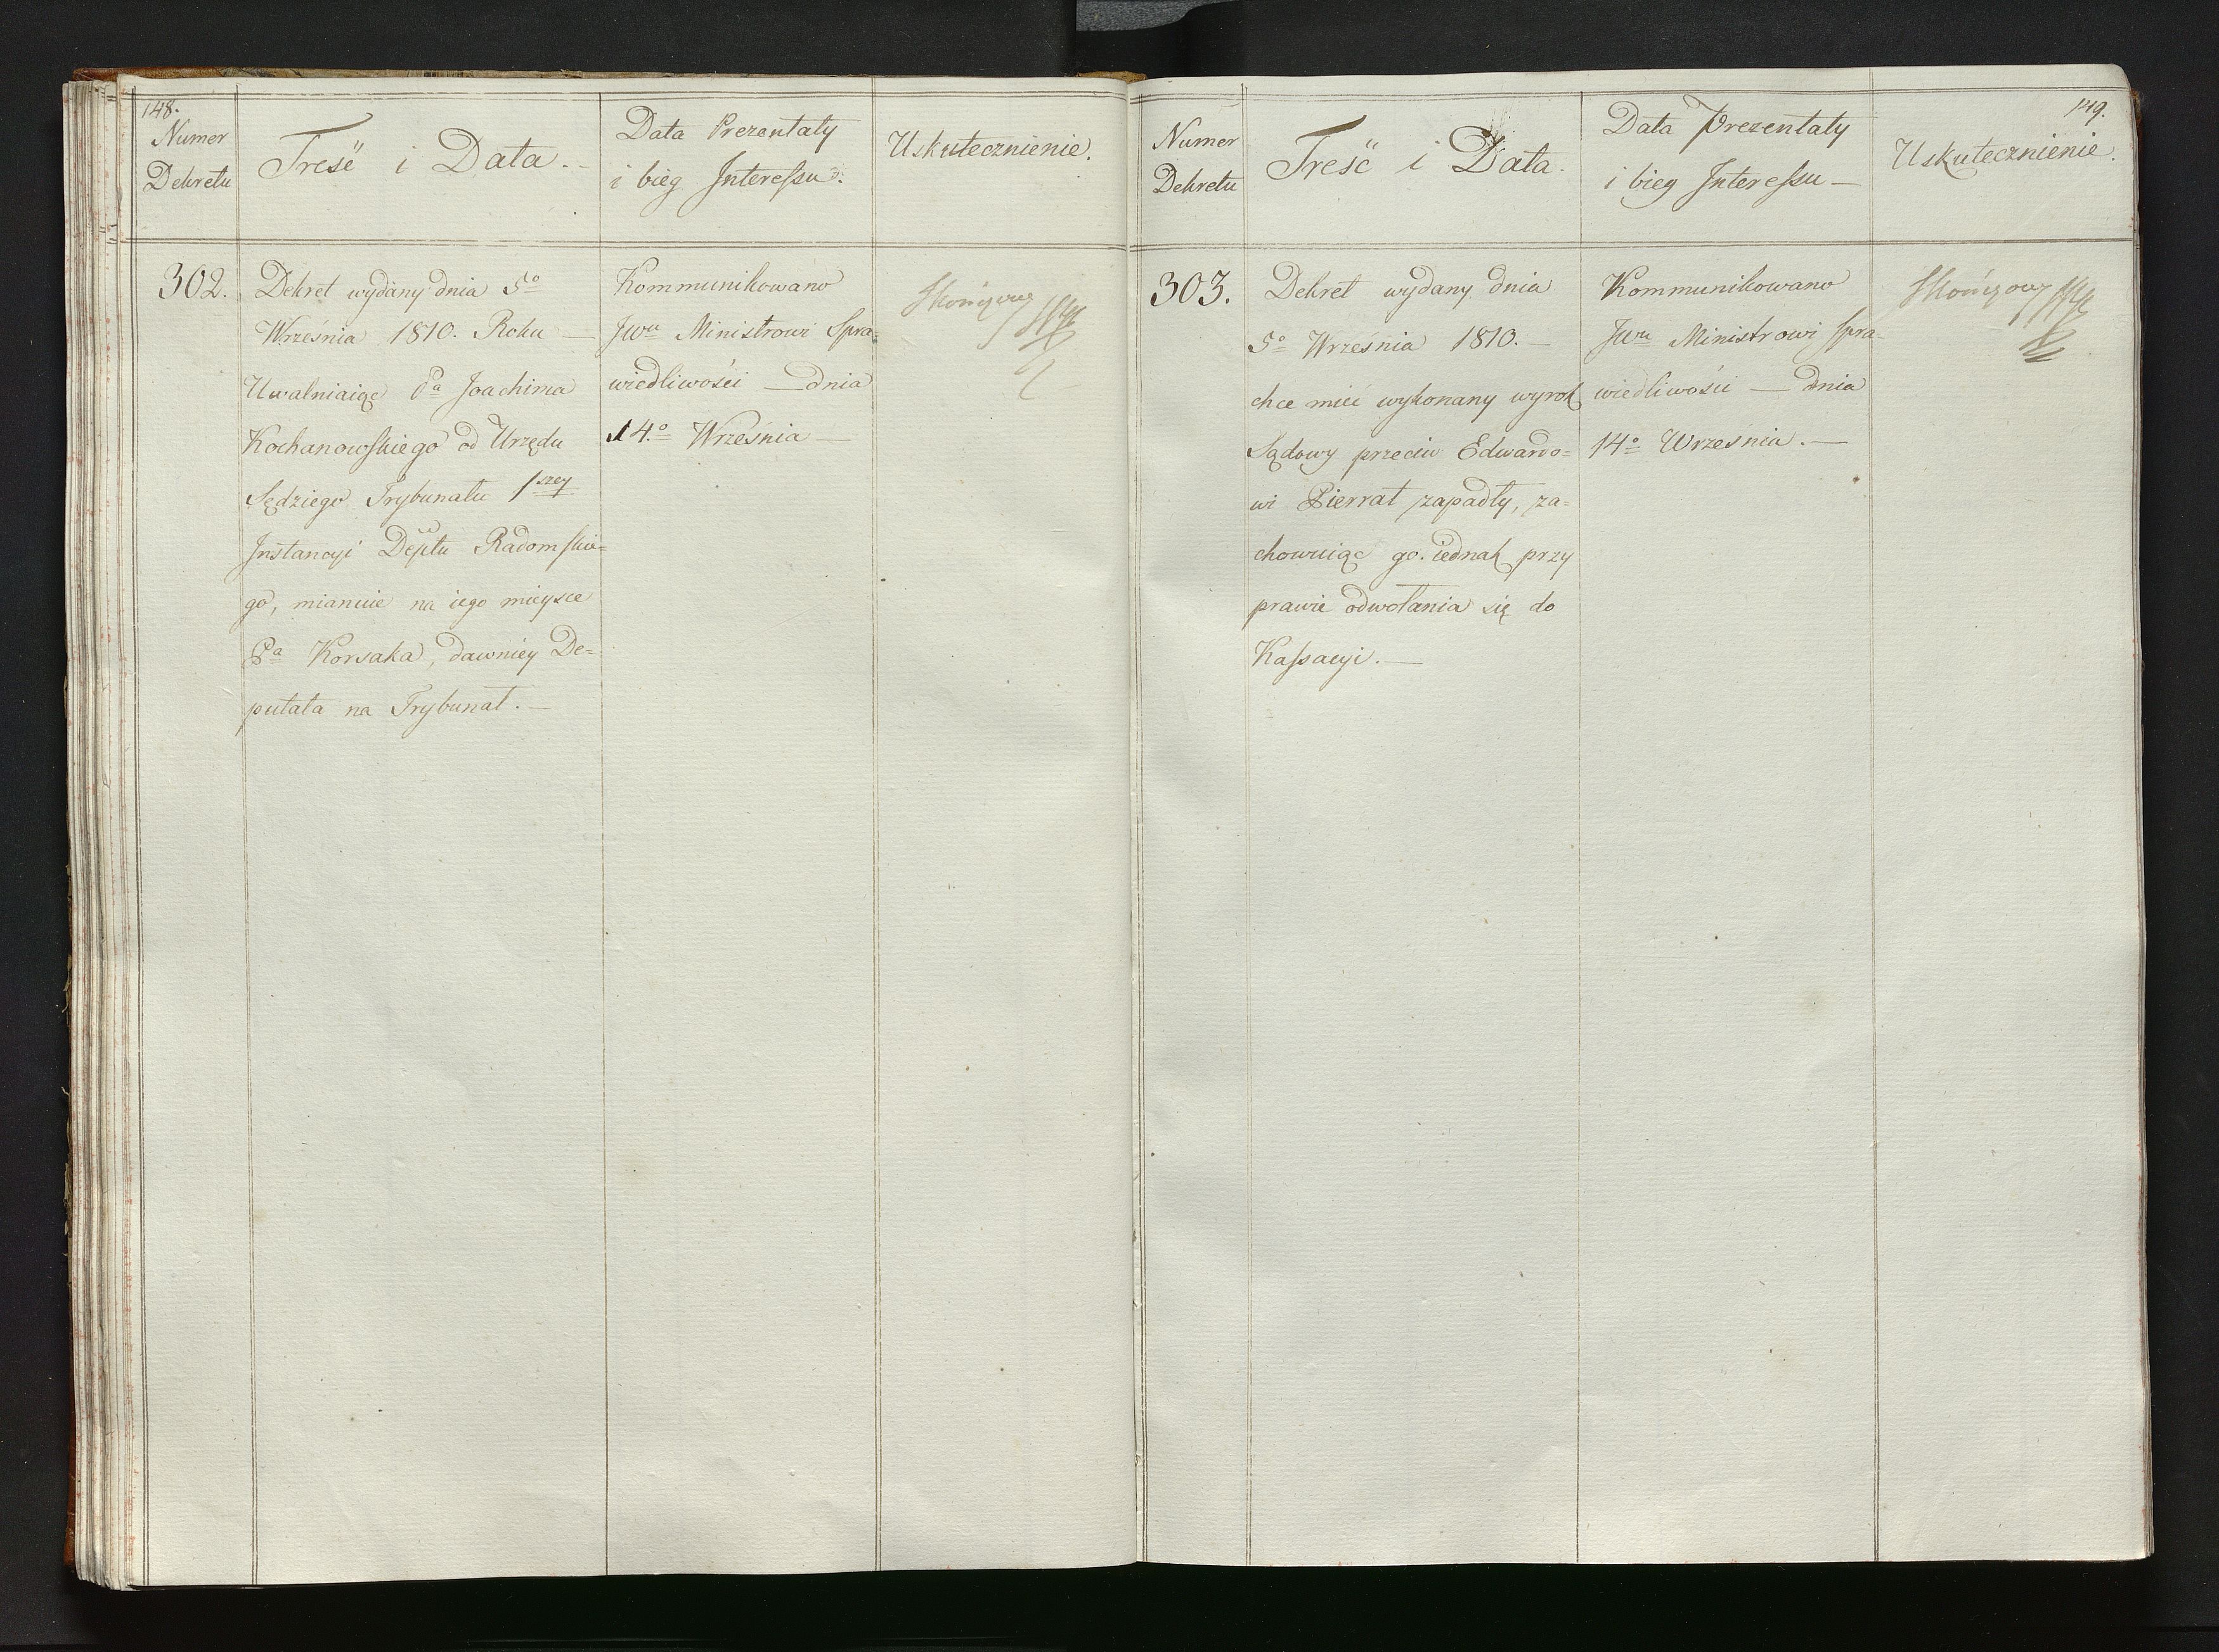 148.
Numer
Dekretu
Treść i Data.
Data Prezentaty
i bieg Interessu.
Uskutecznienie.
302.
Dekret wydany dnia 5o
Września 1810. Roku —
Uwalniaiąc Pa Joachima
Kochanowskiego od Urzędu
Sędziego Trybunału 1szey
Instancyi Deptu Radomskie=
go, mianuie na iego mieysce
Pa Korsaka, dawniey De=
putata na Trybunał. —
Kommunikowano
Jwu Ministrowi Spra=
wiedliwości — dnia
14.o Września —
Skończony
149.
Numer
Dekretu
Treść i Data.
Data Prezentaty
i bieg Interessu —
Uskutecznienie.
303.
Dekret wydany dnia
5o Września 1810. —
chce mieć wykonany wyrok
Sądowy przeciw Edwardo=
wi Pierrat zapadły, za=
chowuiąc go. iednak przy
prawie odwołania się do
Kassacyi. —
Kommunikowano
Jwu Ministrowi Spra=
wiedliwości — dnia
14o Września. —
Skończony